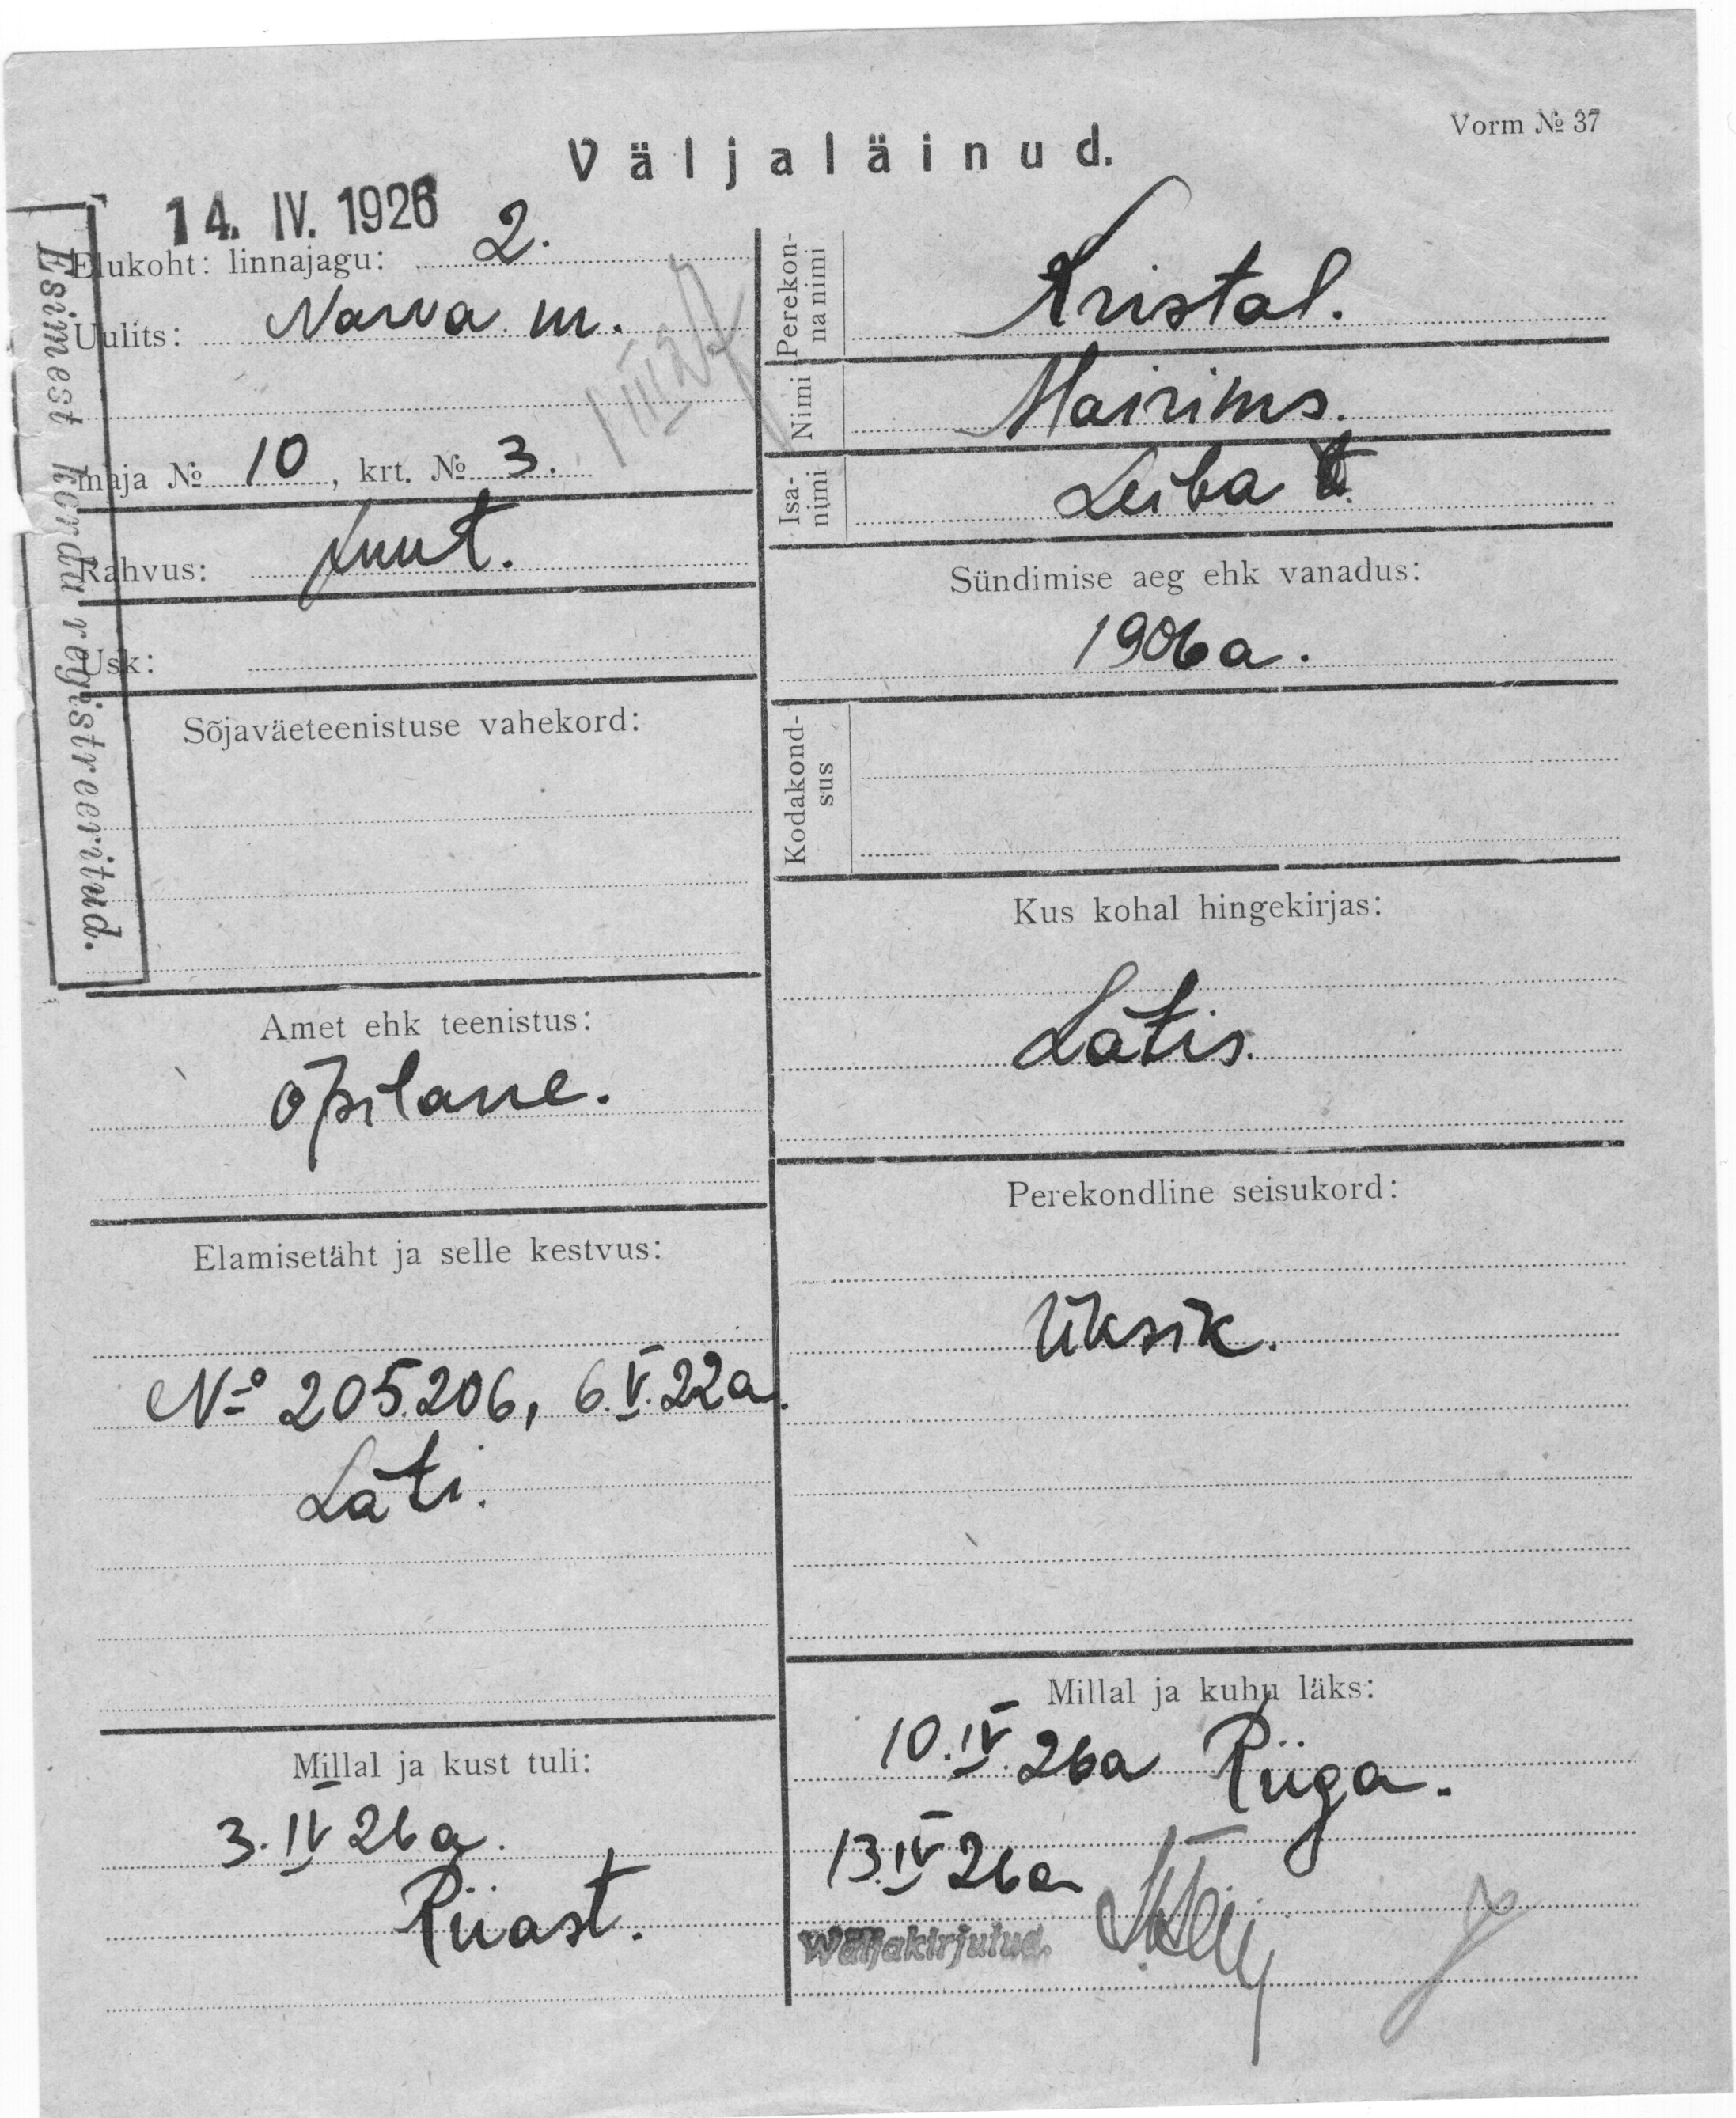 Vorm № 37
Väljaläinud.
14. IV. 1926
Esimest korda registreeritud.
Elukoht: linnajagu: 2.
Uulits: Narva m.
maja № 10, krt. № 3.
Rahvus: Juut.
Usk:
Sõjaväeteenistuse vahekord:
Amet ehk teenistus:
õpilane.
Elamisetäht ja selle kestvus:
№ 205206, 6.V.22a.
Läti.
Millal ja kust tuli:
3. IV 26 a.
Riiast.
Perekonna nimi Kristal.
Nimi Mairims.
Isanimi Leiba
Sündimise aeg ehk vanadus:
1906 a.
Kodakondsus
Kus kohal hingekirjas:
Lätis.
Perekondline seisukord:
Üksik.
Millal ja kuhu läks:
10. IV 26a Riiga.
13. IV 26a
Wäljakirjutud.